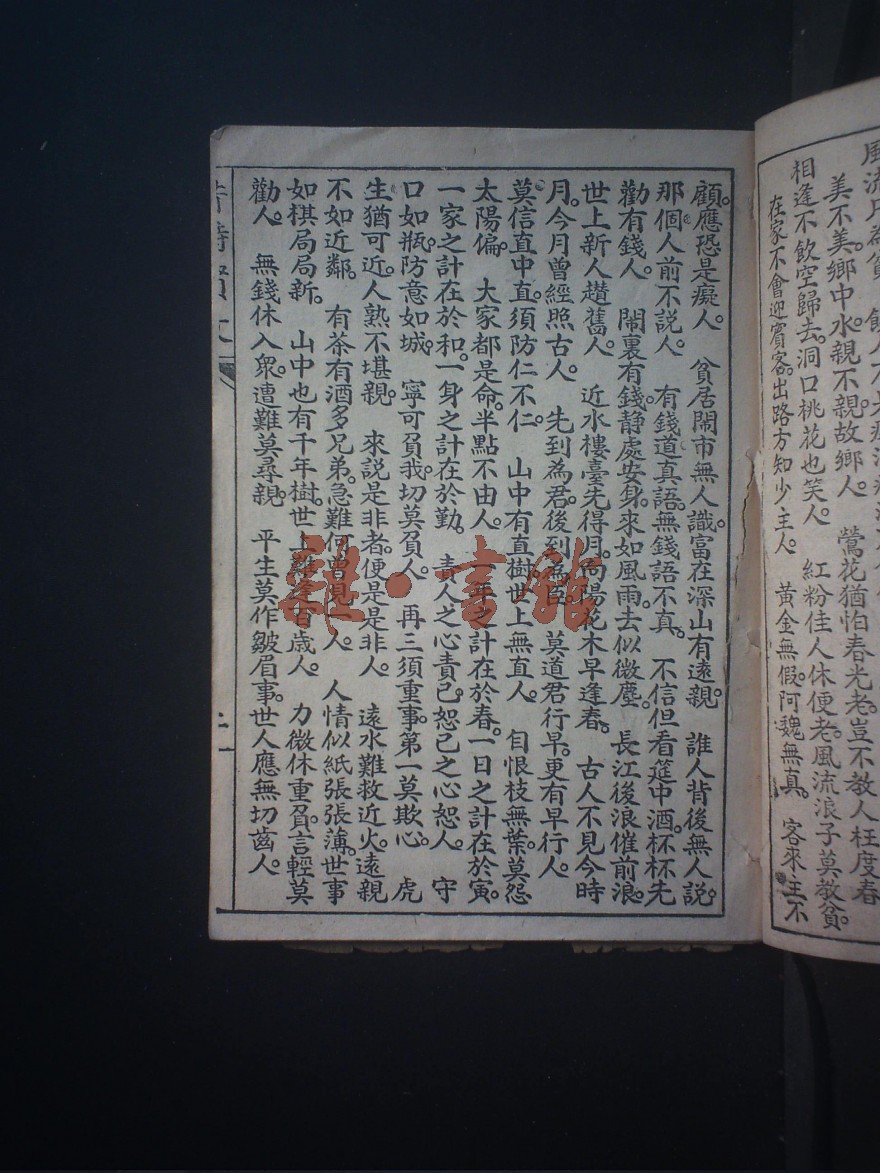 美不美。鄉中水。親不親。故鄉人。 鶯花猶怕春光老。豈不教人枉度春
相逢不飲空歸去。洞口桃花也笑人。 紅粉佳人休便老。風流浪子莫教貧。
在家不會迎賓客。出路方知少主人。 黃金無假。阿魏無真。 客來主不
顧。應恐是癡人。 貧居鬧市無人識。富在深山有遠親。 誰人背後無人說。
那個人前不説人。 有錢道真語。無錢語不真。 不信但看筵中酒。杯杯先
勸有錢人。 鬧裏有錢。靜處安身。來如風雨。去似微塵。 長江後浪催前浪。
世上新人趲舊人。 近水樓臺先得月。向陽花木早逢春。 古人不見今時
月。今月曾經照古人。 先到為君。後到為臣。 莫道君行早。更有早行人。
莫信直中直。須防仁不仁。 山中有直樹。世上無直人。 自恨枝無葉。莫怨
太陽偏。 大家都是命。半點不由人。 一年之計在於春。一日之計在於寅。
一家之計在於和。一身之計在於勤。 責人之心責己。恕己之心恕人。 守
口如瓶。防意如城。 寧可負我。切莫負人。 再三須重事。第一莫欺心。 虎
生猶可近。人熟不堪親。 來説是非者。便是是非人。 遠水難救近火。遠親
不如近鄰。 有茶有酒多兄弟。急難何曾見一人。 人情似紙張張薄。世事
如棋局局新。 山中也有千年樹。世上難逢百歲人。 力微休重負。言輕莫
勸人。 無錢休入衆。遭難莫尋親。 平生莫作皺眉事。世人應無切齒人。
二
雜·書館